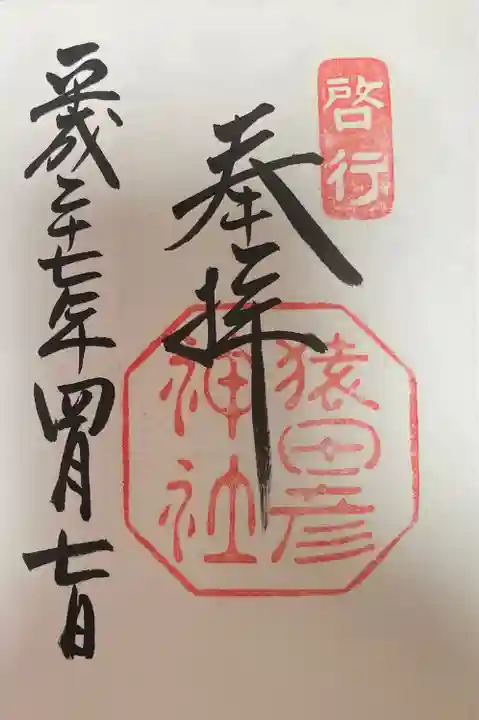 啓行
奉拝
猿田彦
神社
平成二十七年四月七日